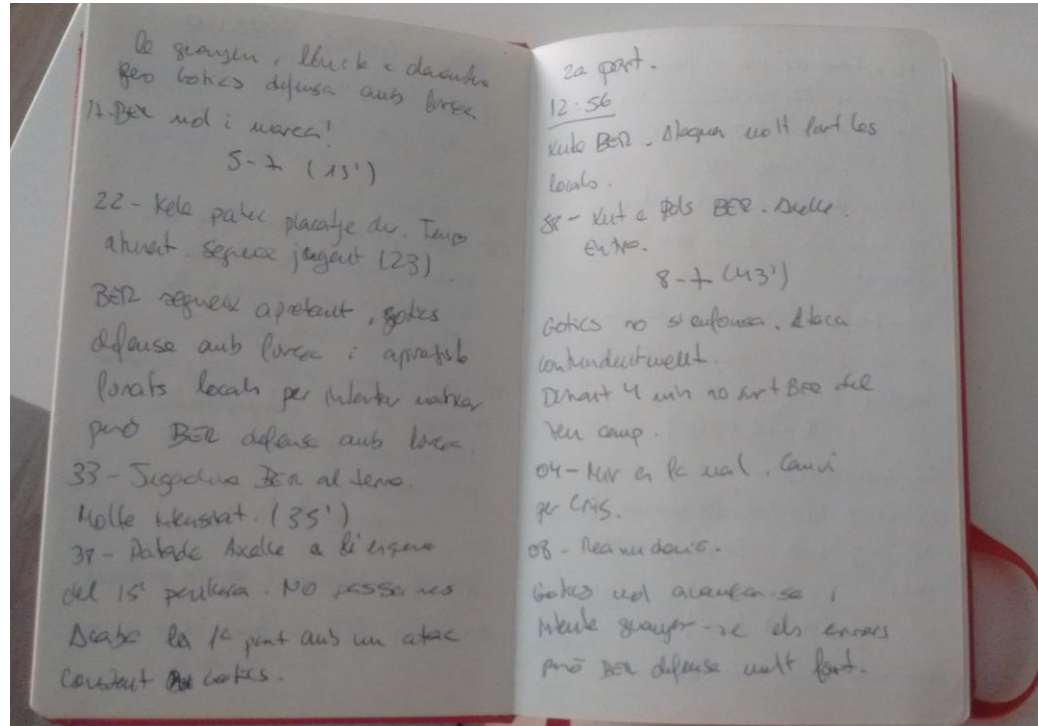 la guanyen, lluck a davantera
però Gotics defensa amb força
17-BER vol i marca!
5-7 (15')
22- Kele patec placatge dur. Temps
aturat. Segueix jugant (23)
BER segueix apretant, gotics
defensa amb força i aprofita
locals per intentar
però BER defensa amb força
33- Jugadora BER al terra.
Molta intensitat. (35')
38- Patada Axelle a
del 15 . NO passa res
Acaba la 1ª part amb un atac
constant Gotics.
2a part.
12:56
Xuta BER. Ataquen molt fort les
locals.
58- Xut a pals BER. Axelle.
Entra.
8-7 (43')
Gotics no s'enfonsa. Ataca
contundentment.
Durant 4 min no surt BER del
seu camp.
04- es fa mal. Canvi
per Cris.
08- Reanudació.
Gotics vol avançar-se i
intenta guanyar-se els errors
però BER defensa molt fort.